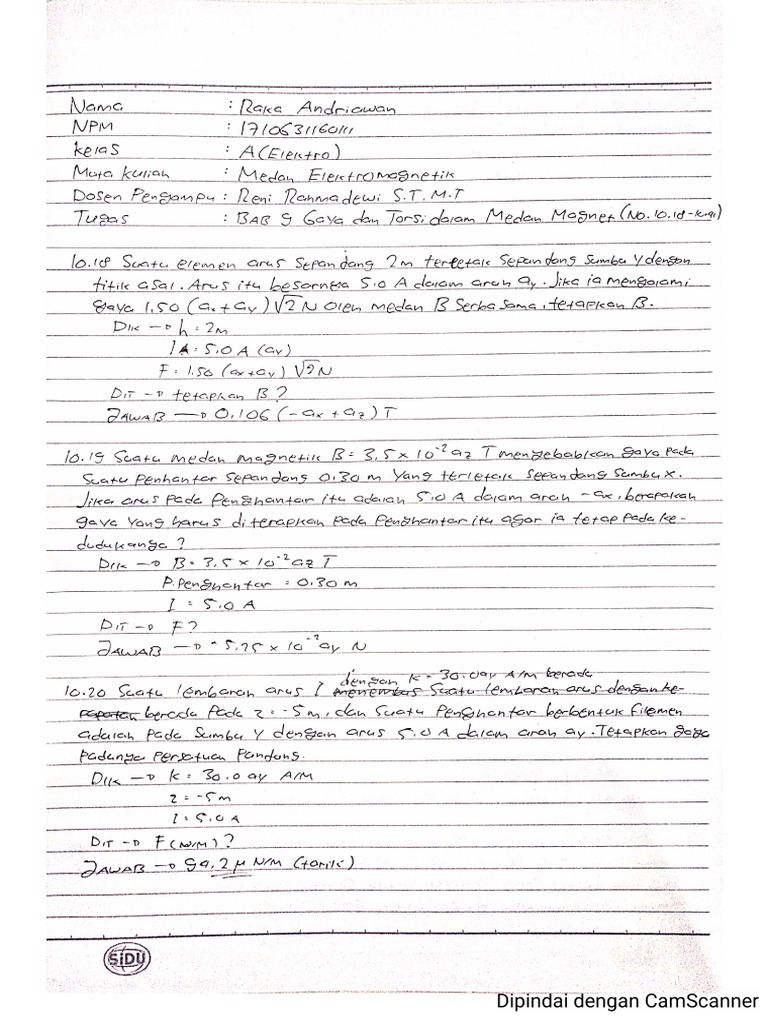 Nama : Raka Andriawan
NPM : 1710631160111
Kelas : A (Elektro)
Mata Kuliah : Medan Elektromagnetik
Dosen Pengampu : Reni Rahmadewi S.T.M.T
Tugas : BAB 9 Gaya dan Torsi dalam Medan Magnet (No. 10.18-10.41)
10.18 Suatu elemen arus sepandang 2m terletak sepandang sumbu y dengan
titik asal. Arus itu besarnya 5.0 A dalam arah ay. Jika ia mengalami
gaya 1.50 (ax + ay) √2 N oleh medan B serba sama, tetapkan B.
Dik → h = 2m
I = 5.0 A (ay)
F = 1.50 (ax+ay) √2 N
Dit → tetapkan B?
JAWAB → 0.106 (-ax + az) T
10.19 Suatu medan magnetik B = 3.5 x 10⁻² az T mengebabkan gaya pada
suatu penhantar sepandang 0.30 m yang terletak sepandang sumbu x.
Jika arus pada penghantar itu adalah 5.0 A dalam arah -ax, berapakah
gaya yang harus diterapkan pada penghantar itu agar ia tetap pada ke-
dudukanga?
Dik → B = 3.5 x 10⁻² az T
P.Penghantar = 0.30 m
I = 5.0 A
Dit → F?
JAWAB → -5.25 x 10⁻² ay N
dengan K = 30.0 ay A/M berada
10.20 Suatu lembaran arus I menembus suatu lembaran arus dengan ke-
rapatan berada pada z = -5 m, dan suatu penghantar berbentuk filemen
adalah pada sumbu y dengan arus 5.0 A dalam arah ay. Tetapkan gaga
padanga persatuan pandang.
Dik → K = 30.0 ay A/M
z = -5 m
I = 5.0 A
Dit → F (N/M)?
JAWAB → 94.2 μ N/M (tarik)
SiDU
Dipindai dengan CamScanner